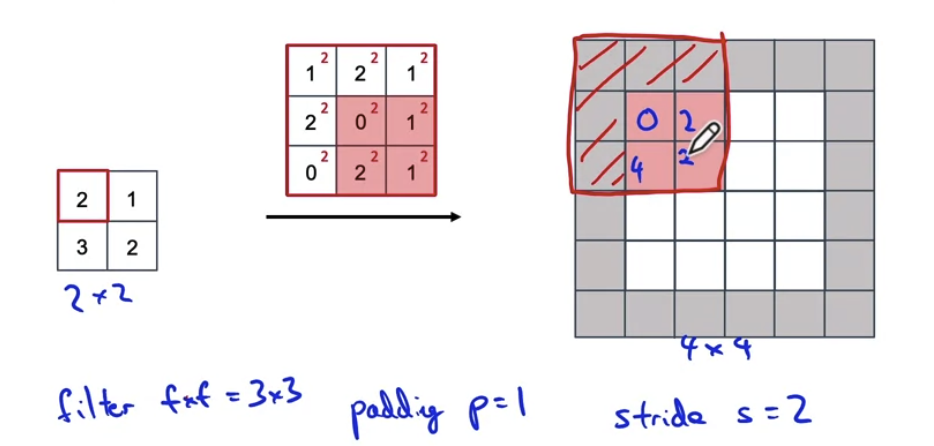 1² 2² 1²
2² 0² 1²
0² 2² 1²
2 1
3 2
2×2
0 2
4 2
4×4
filter f×f = 3×3
paddig p=1
stride s=2